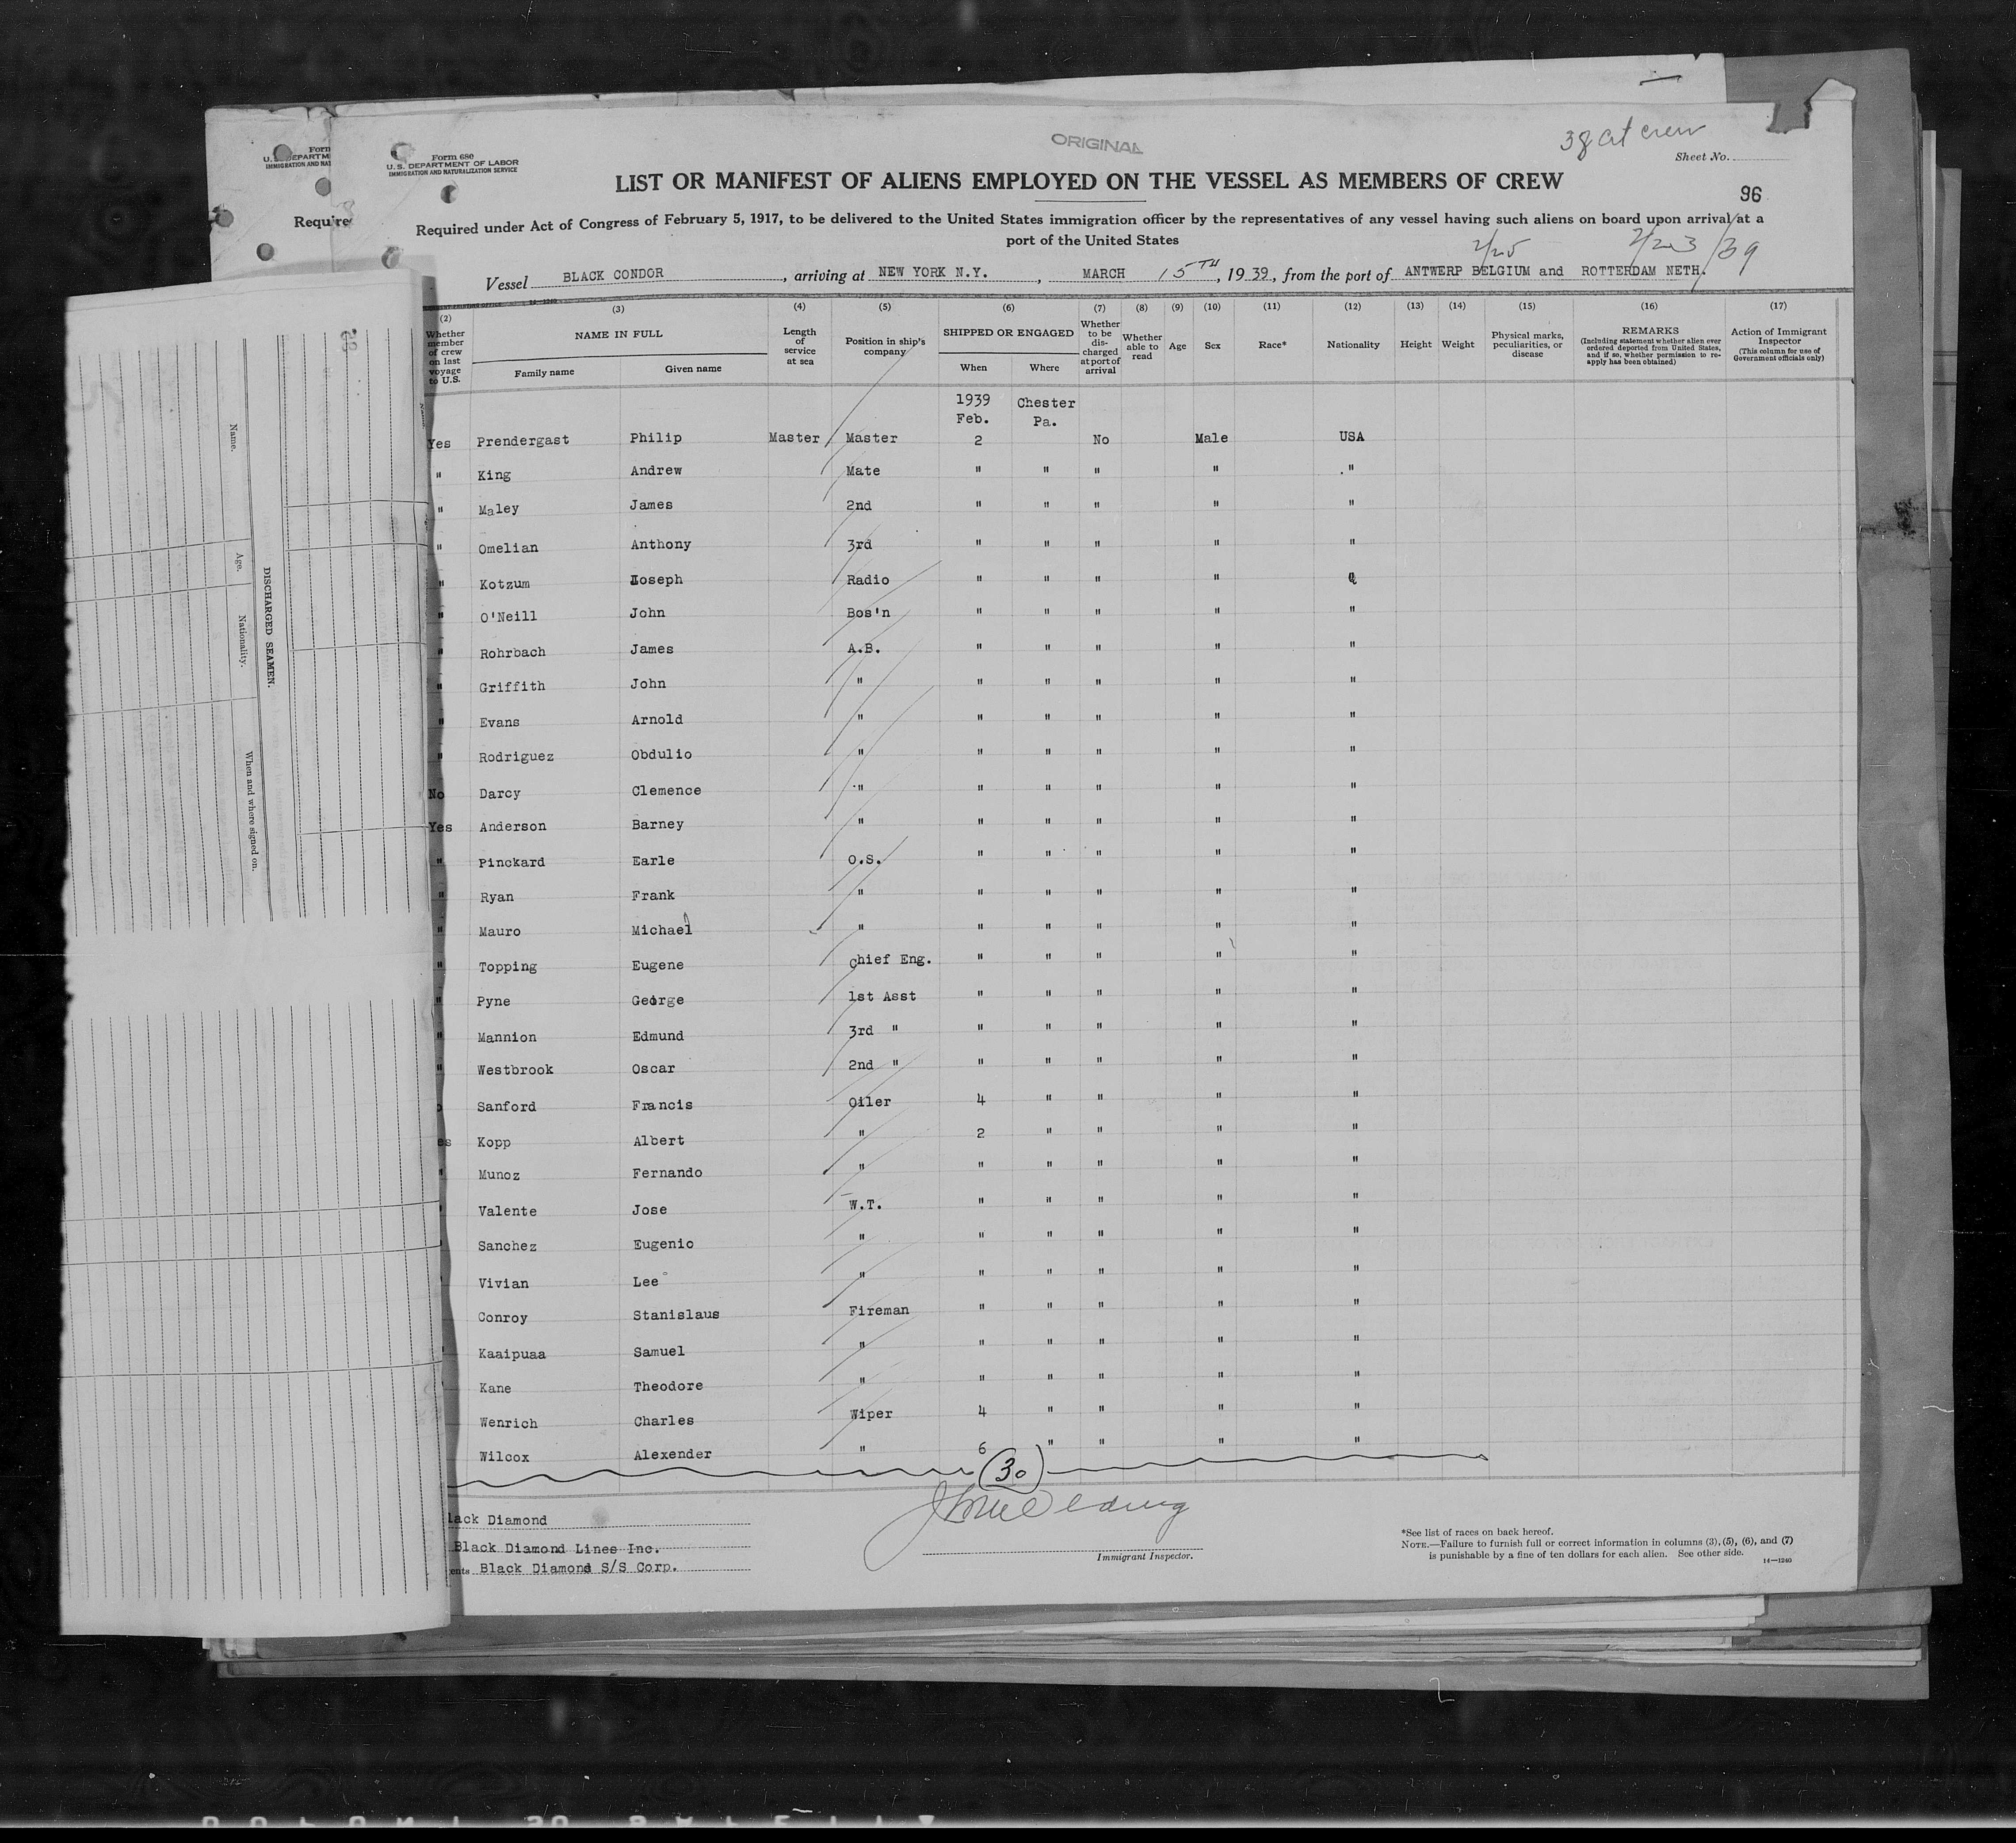 ORIGINAL
38 cit crew
Form 680
U. S. DEPARTMENT OF LABOR
IMMIGRATION AND NATURALIZATION SERVICE
Sheet No.
LIST OR MANIFEST OF ALIENS EMPLOYED ON THE VESSEL AS MEMBERS OF CREW
96
Required under Act of Congress of February 5, 1917, to be delivered to the United States immigration officer by the representatives of any vessel having such aliens on board upon arrival at a
port of the United States
2/25 2/23/39
Vessel BLACK CONDOR, arriving at NEW YORK N.Y., MARCH 15TH, 1939, from the port of ANTWERP BELGIUM and ROTTERDAM NETH.
(2) (3) (4) (5) (6) (7) (8) (9) (10) (11) (12) (13) (14) (15) (16) (17)
Whether member of crew on last voyage to U.S.
NAME IN FULL
Family name Given name
Length of service at sea
Position in ship's company
SHIPPED OR ENGAGED
When Where
Whether to be discharged at port of arrival
Whether able to read
Age
Sex
Race*
Nationality
Height
Weight
Physical marks, peculiarities, or disease
REMARKS
(Including statement whether alien ever ordered deported from United States, and if so, whether permission to re-apply has been obtained)
Action of Immigrant Inspector
(This column for use of Government officials only)
1939 Chester
Feb. Pa.
Yes Prendergast Philip Master Master 2 No Male USA
" King Andrew Mate " " " " "
" Maley James 2nd " " " " "
" Omelian Anthony 3rd " " " " "
" Kotzum Joseph Radio " " " " "
" O'Neill John Bos'n " " " " "
" Rohrbach James A.B. " " " " "
" Griffith John " " " " " "
" Evans Arnold " " " " " "
" Rodriguez Obdulio " " " " " "
No Darcy Clemence " " " " " "
Yes Anderson Barney " " " " " "
" Pinckard Earle O.S. " " " " "
" Ryan Frank " " " " " "
" Mauro Michael " " " " " "
" Topping Eugene Chief Eng. " " " " "
" Pyne George 1st Asst " " " " "
" Mannion Edmund 3rd " " " " " "
" Westbrook Oscar 2nd " " " " " "
o Sanford Francis Oiler 4 " " " "
es Kopp Albert " 2 " " " "
" Munoz Fernando " " " " " "
" Valente Jose W.T. " " " " "
Sanchez Eugenio " " " " " "
Vivian Lee " " " " " "
Conroy Stanislaus Fireman " " " " "
Kaaipuaa Samuel " " " " " "
Kane Theodore " " " " " "
Wenrich Charles Wiper 4 " " " "
Wilcox Alexender " 6 " " " "
(30)
lack Diamond
Black Diamond Lines Inc.
ents Black Diamond S/S Corp.
Immigrant Inspector.
*See list of races on back hereof.
NOTE.—Failure to furnish full or correct information in columns (3), (5), (6), and (7)
is punishable by a fine of ten dollars for each alien. See other side.
14—1240
Form
U. S. DEPARTM
IMMIGRATION AND NAT
Require
DISCHARGED SEAMEN.
Name.
Age.
Nationality.
When and where signed on.